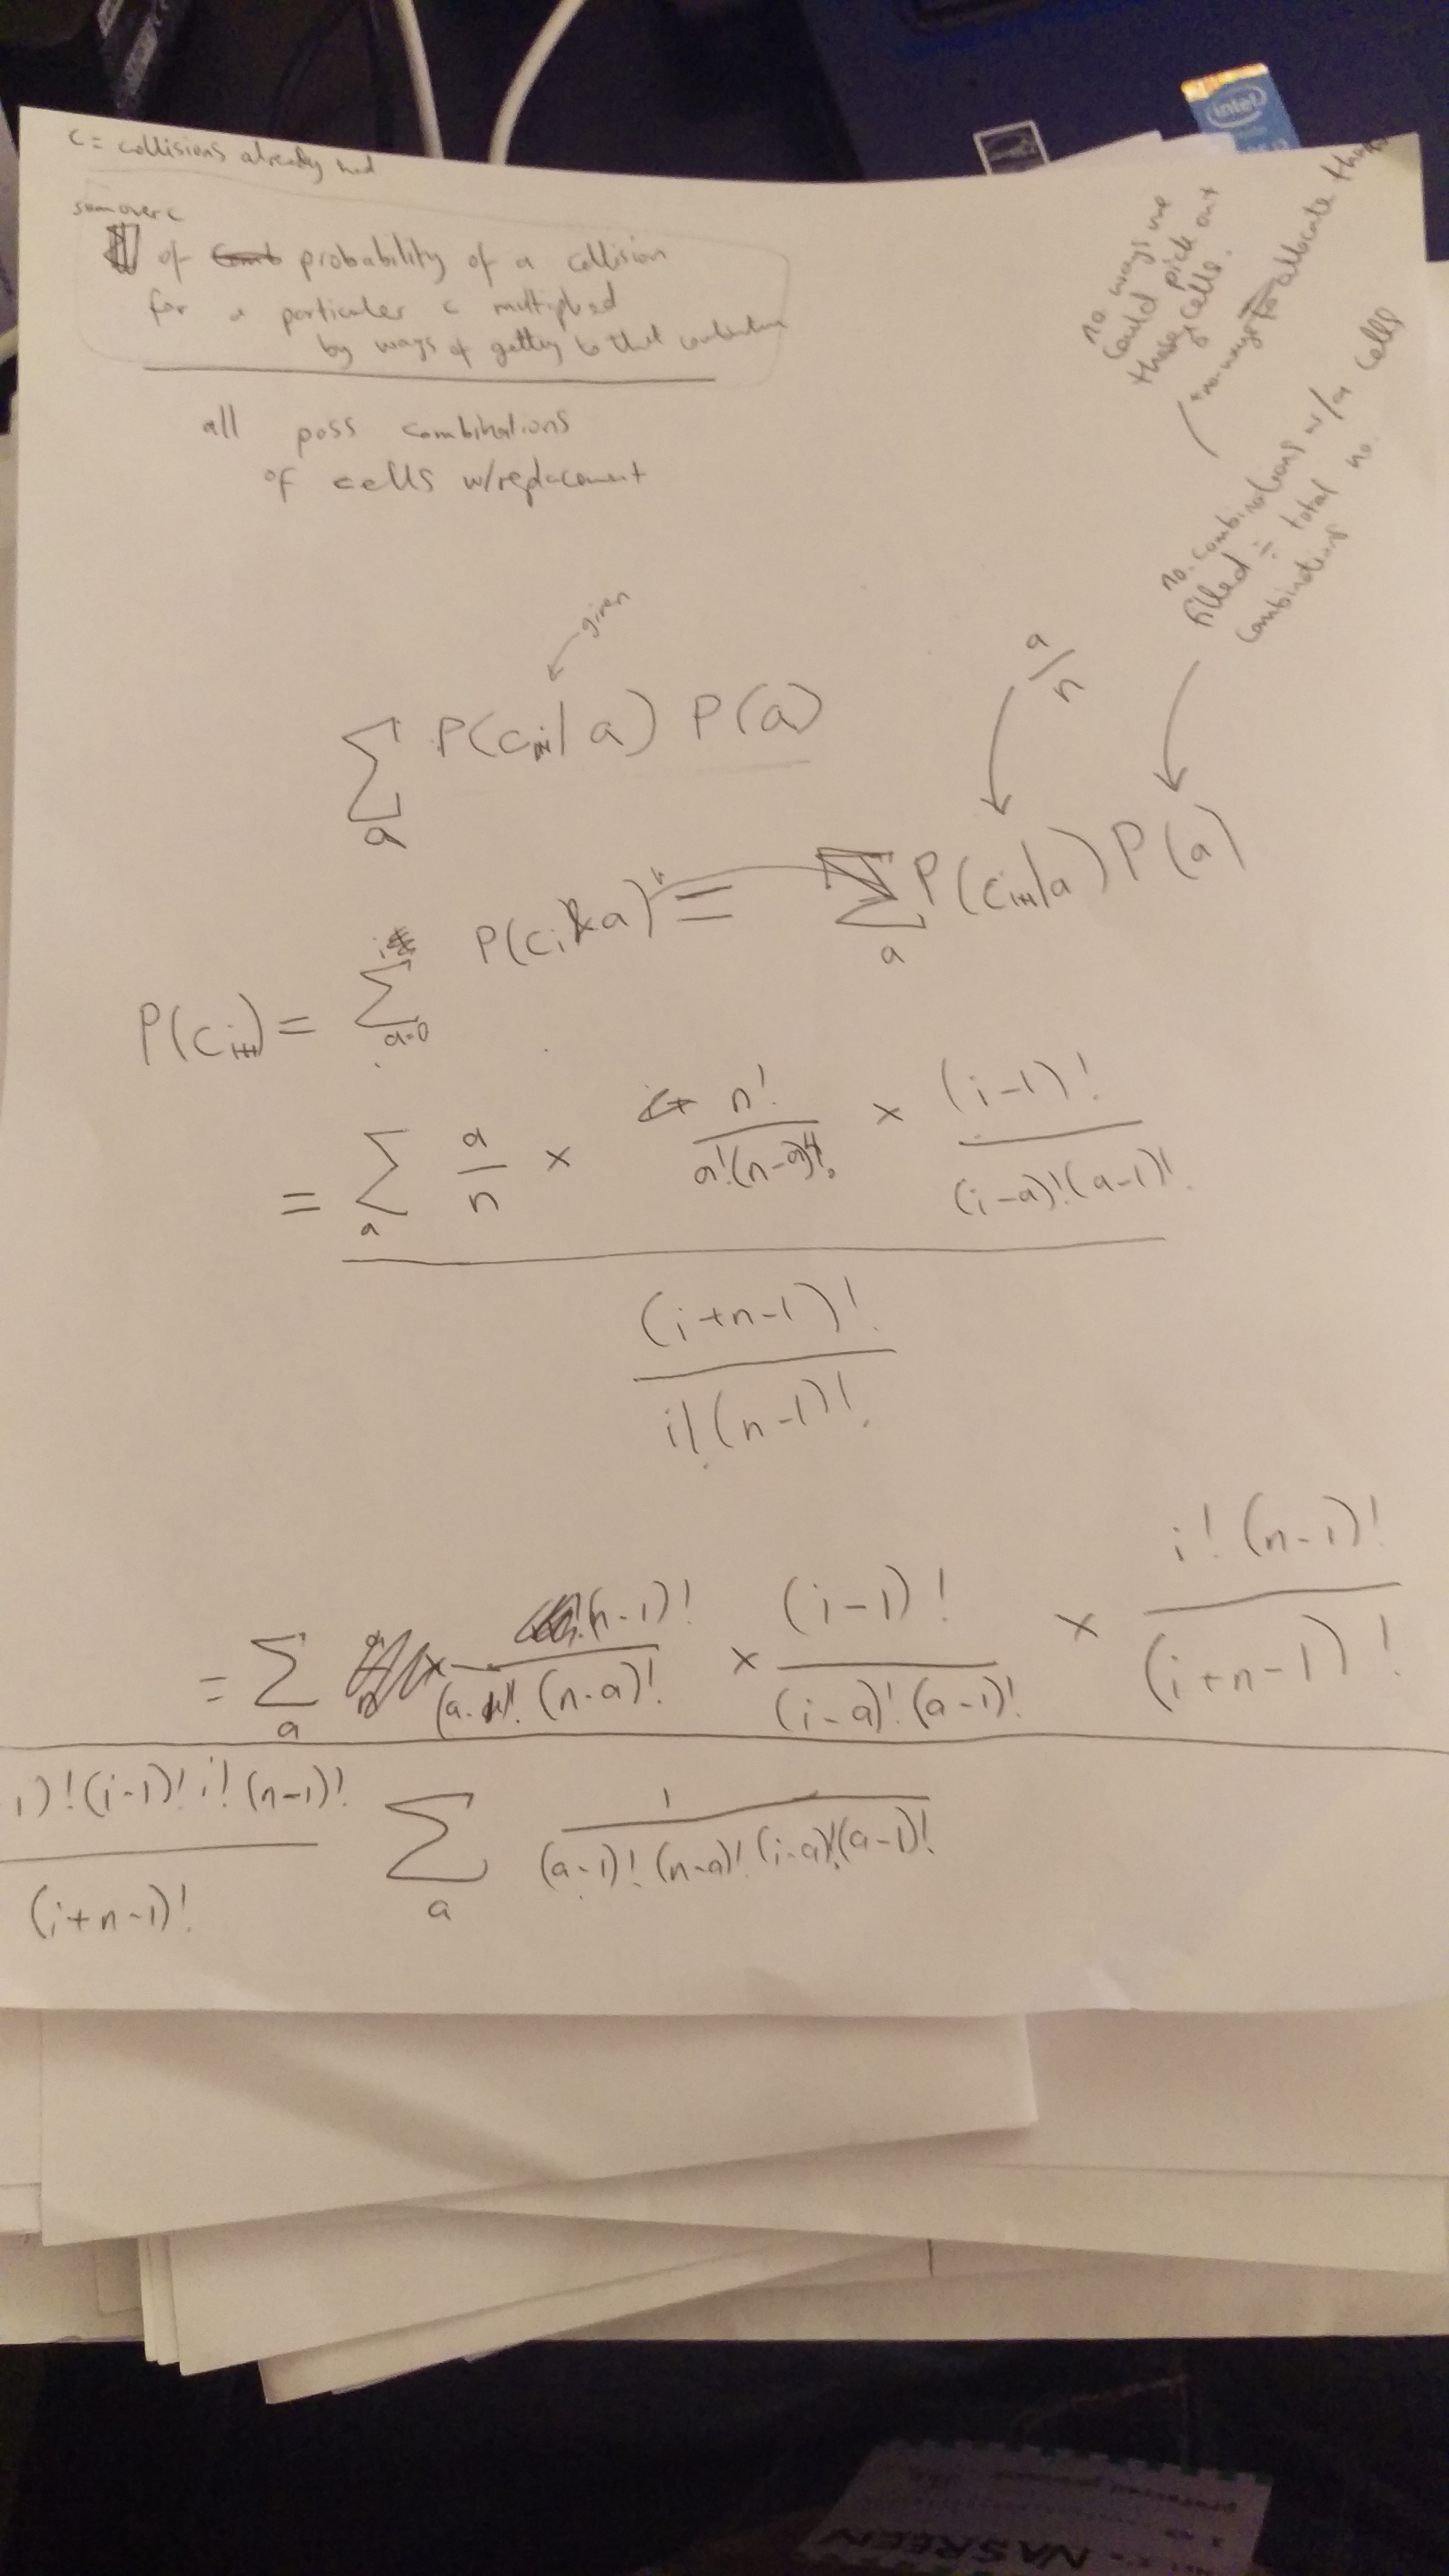 c = collisions already had
sum over c
of probability of a collision
for a particular c multiplied
by ways of getting to that combination
all poss combinations
of cells w/replacement
no. ways we
could pick out
those cells.
* no. ways to allocate
no. combinations w/a cells
filled ÷ total no.
combinations
given
a/n
∑ₐ P(cᵢ₊₁|a) P(a)
P(cᵢ₊₁) = ∑ₐ₌₀ⁱ P(cᵢ&a) = ∑ₐ P(cᵢ₊₁|a) P(a)
= ∑ₐ a/n × n!/(a!(n-a)!) × (i-1)!/((i-a)!(a-1)!)
(i+n-1)!/(i!(n-1)!)
= ∑ₐ (n-1)!/((a-1)!(n-a)!) × (i-1)!/((i-a)!(a-1)!) × i!(n-1)!/(i+n-1)!
1)!(i-1)!i!(n-1)!/(i+n-1)! ∑ₐ 1/((a-1)!(n-a)!(i-a)!(a-1)!)
intel
NASREEN